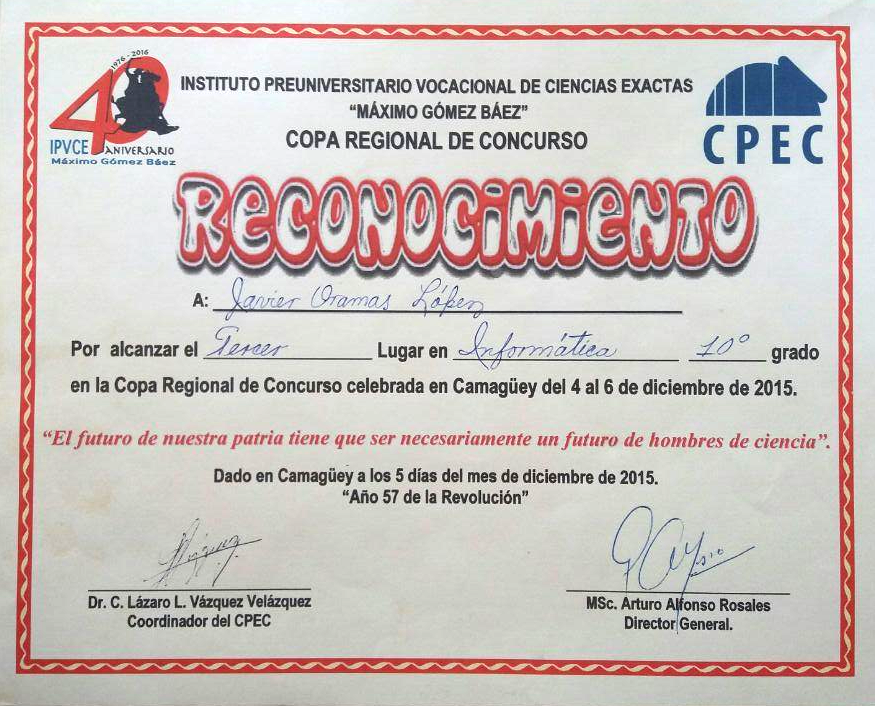 1976 - 2016
40
IPVCE ANIVERSARIO
Máximo Gómez Báez
INSTITUTO PREUNIVERSITARIO VOCACIONAL DE CIENCIAS EXACTAS
“MÁXIMO GÓMEZ BÁEZ”
COPA REGIONAL DE CONCURSO
CPEC
RECONOCIMIENTO
A: Javier Oramas López
Por alcanzar el Tercer Lugar en Informática 10º grado
en la Copa Regional de Concurso celebrada en Camagüey del 4 al 6 de diciembre de 2015.
“El futuro de nuestra patria tiene que ser necesariamente un futuro de hombres de ciencia”.
Dado en Camagüey a los 5 días del mes de diciembre de 2015.
“Año 57 de la Revolución”
Dr. C. Lázaro L. Vázquez Velázquez
Coordinador del CPEC
MSc. Arturo Alfonso Rosales
Director General.